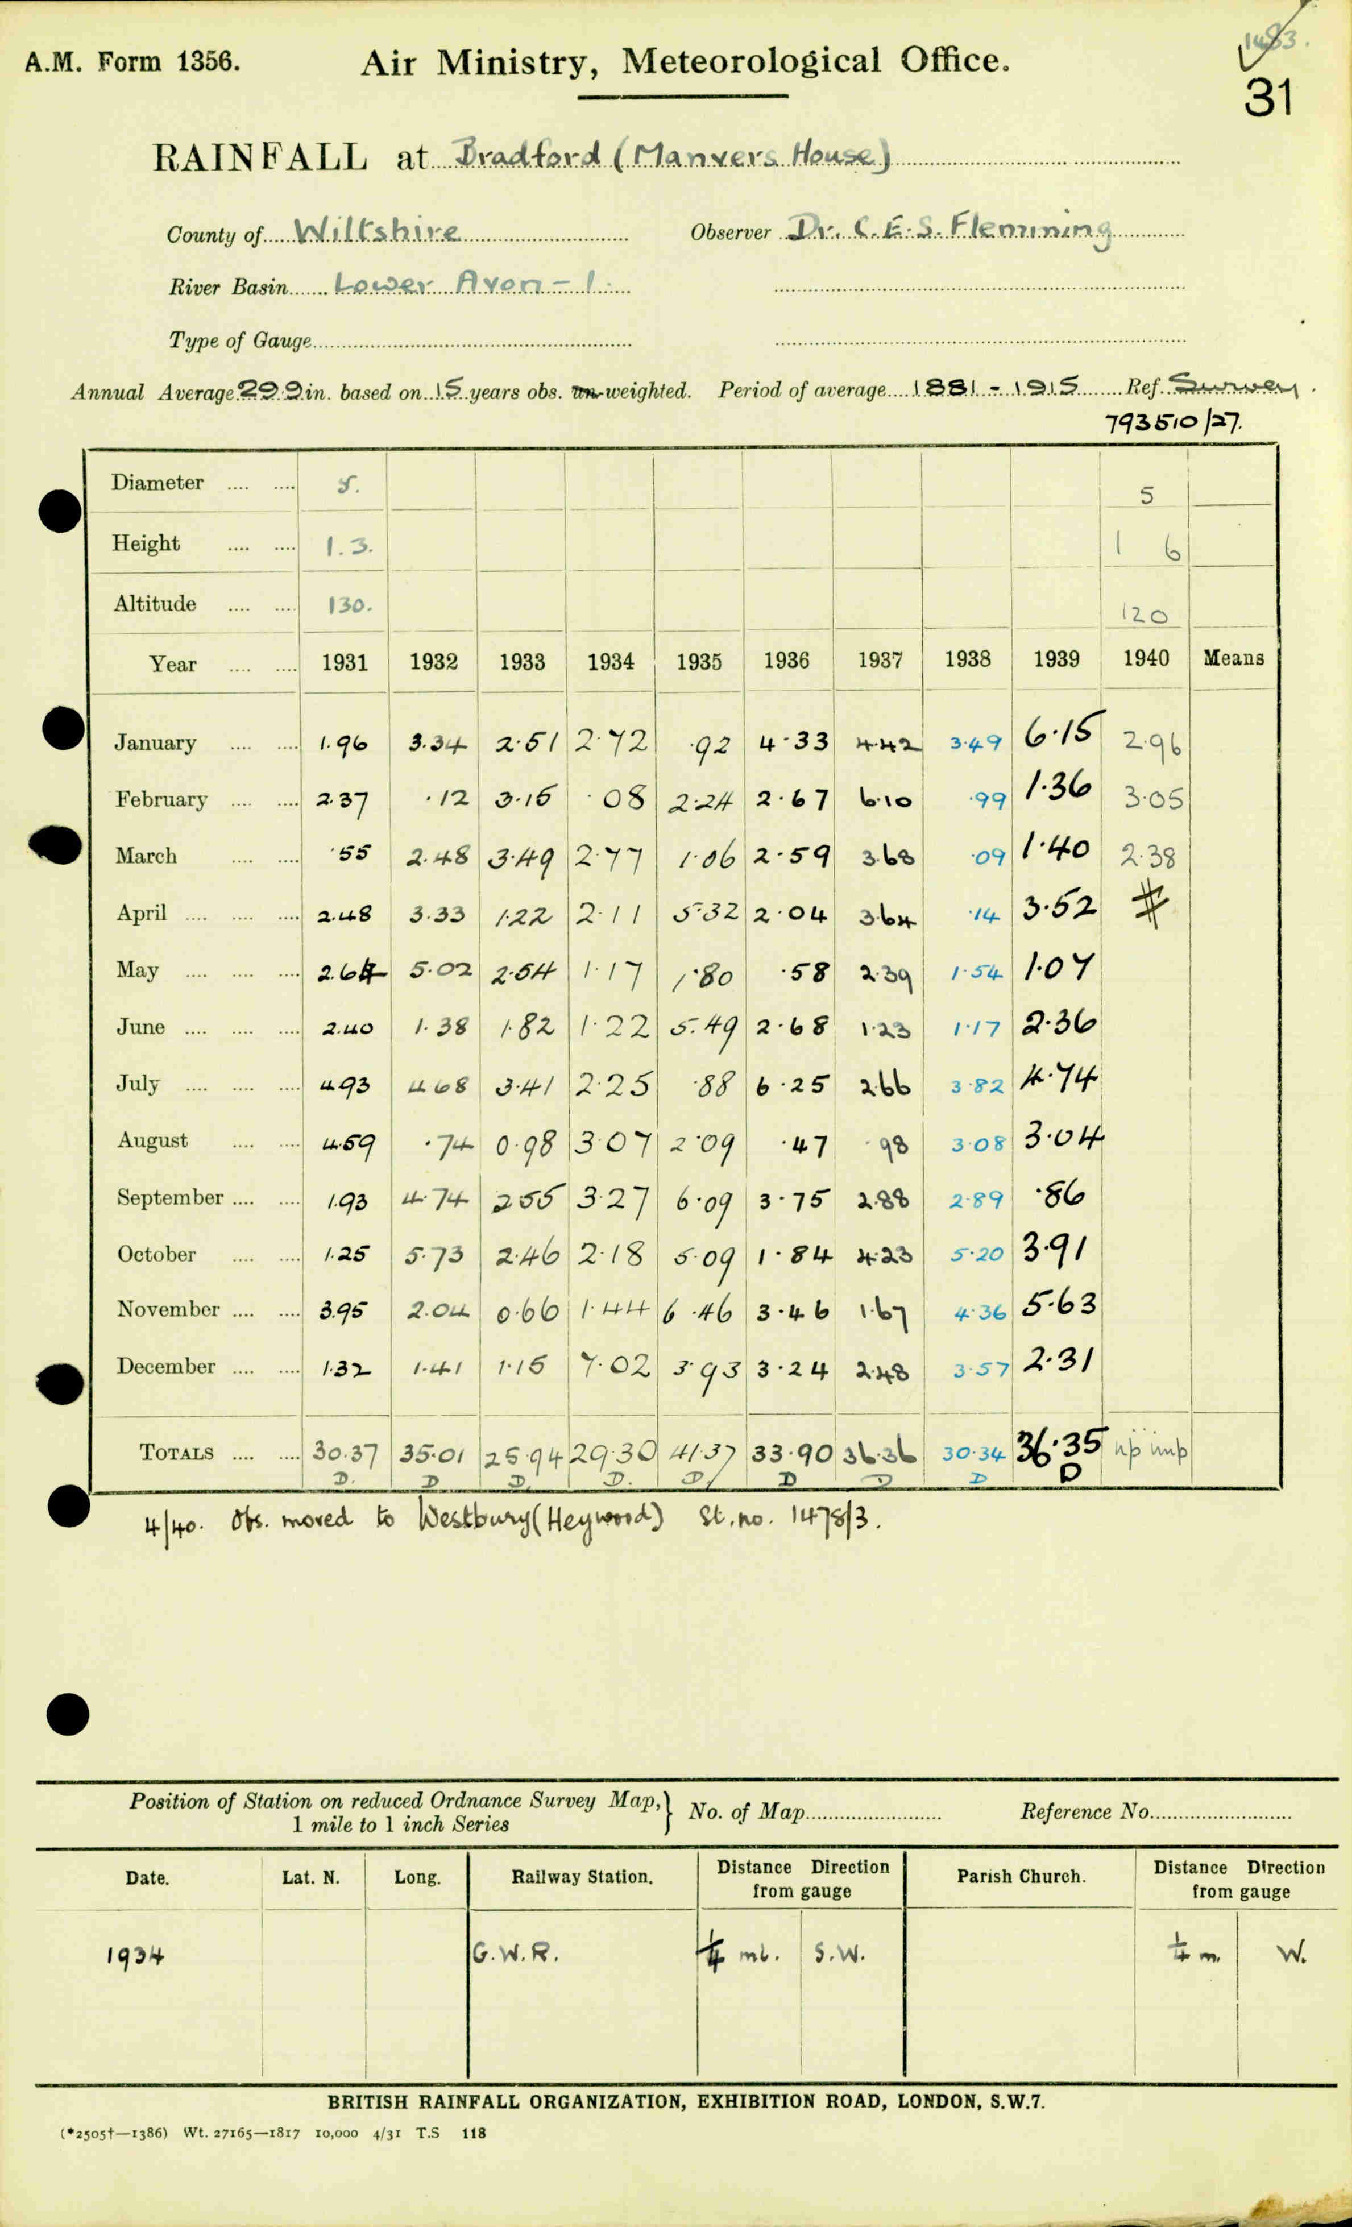 A.M. Form 1356. Air Ministry, Meteorological Office. 1483.
31
RAINFALL at Bradford (Manvers House)
County of Wiltshire Observer Dr. C.E.S. Flemming
River Basin Lower Avon - 1.
Type of Gauge
Annual Average 29.9 in. based on 15 years obs. un-weighted. Period of average 1881 - 1915 Ref. Survey
793510/27.
Diameter 5. 5
Height 1.3. 1 6
Altitude 130. 120
Year 1931 1932 1933 1934 1935 1936 1937 1938 1939 1940 Means
January 1.96 3.34 2.51 2.72 .92 4.33 4.42 3.49 6.15 2.96
February 2.37 .12 3.15 .08 2.24 2.67 6.10 .99 1.36 3.05
March .55 2.48 3.49 2.77 1.06 2.59 3.68 .09 1.40 2.38
April 2.48 3.33 1.22 2.11 5.32 2.04 3.64 .14 3.52 #
May 2.64 5.02 2.54 1.17 1.80 .58 2.39 1.54 1.07
June 2.40 1.38 1.82 1.22 5.49 2.68 1.23 1.17 2.36
July 4.93 4.68 3.41 2.25 .88 6.25 2.66 3.82 4.74
August 4.59 .74 0.98 3.07 2.09 .47 .98 3.08 3.04
September 1.93 4.74 2.55 3.27 6.09 3.75 2.88 2.89 .86
October 1.25 5.73 2.46 2.18 5.09 1.84 4.23 5.20 3.91
November 3.95 2.04 0.66 1.44 6.46 3.46 1.67 4.36 5.63
December 1.32 1.41 1.15 7.02 3.93 3.24 2.48 3.57 2.31
TOTALS 30.37 35.01 25.94 29.30 41.37 33.90 36.36 30.34 36.35 np imp
D. D D. D. D. D D D D
4/40. Obs. moved to Westbury (Heywood) St. no. 1478/3.
Position of Station on reduced Ordnance Survey Map, } No. of Map Reference No.
1 mile to 1 inch Series
Date. Lat. N. Long. Railway Station. Distance Direction from gauge Parish Church. Distance Direction from gauge
1934 G.W.R. ¼ ml. S.W. ¼ m. W.
BRITISH RAINFALL ORGANIZATION, EXHIBITION ROAD, LONDON, S.W.7.
(*2505†—1386) Wt. 27165—1817 10,000 4/31 T.S 118